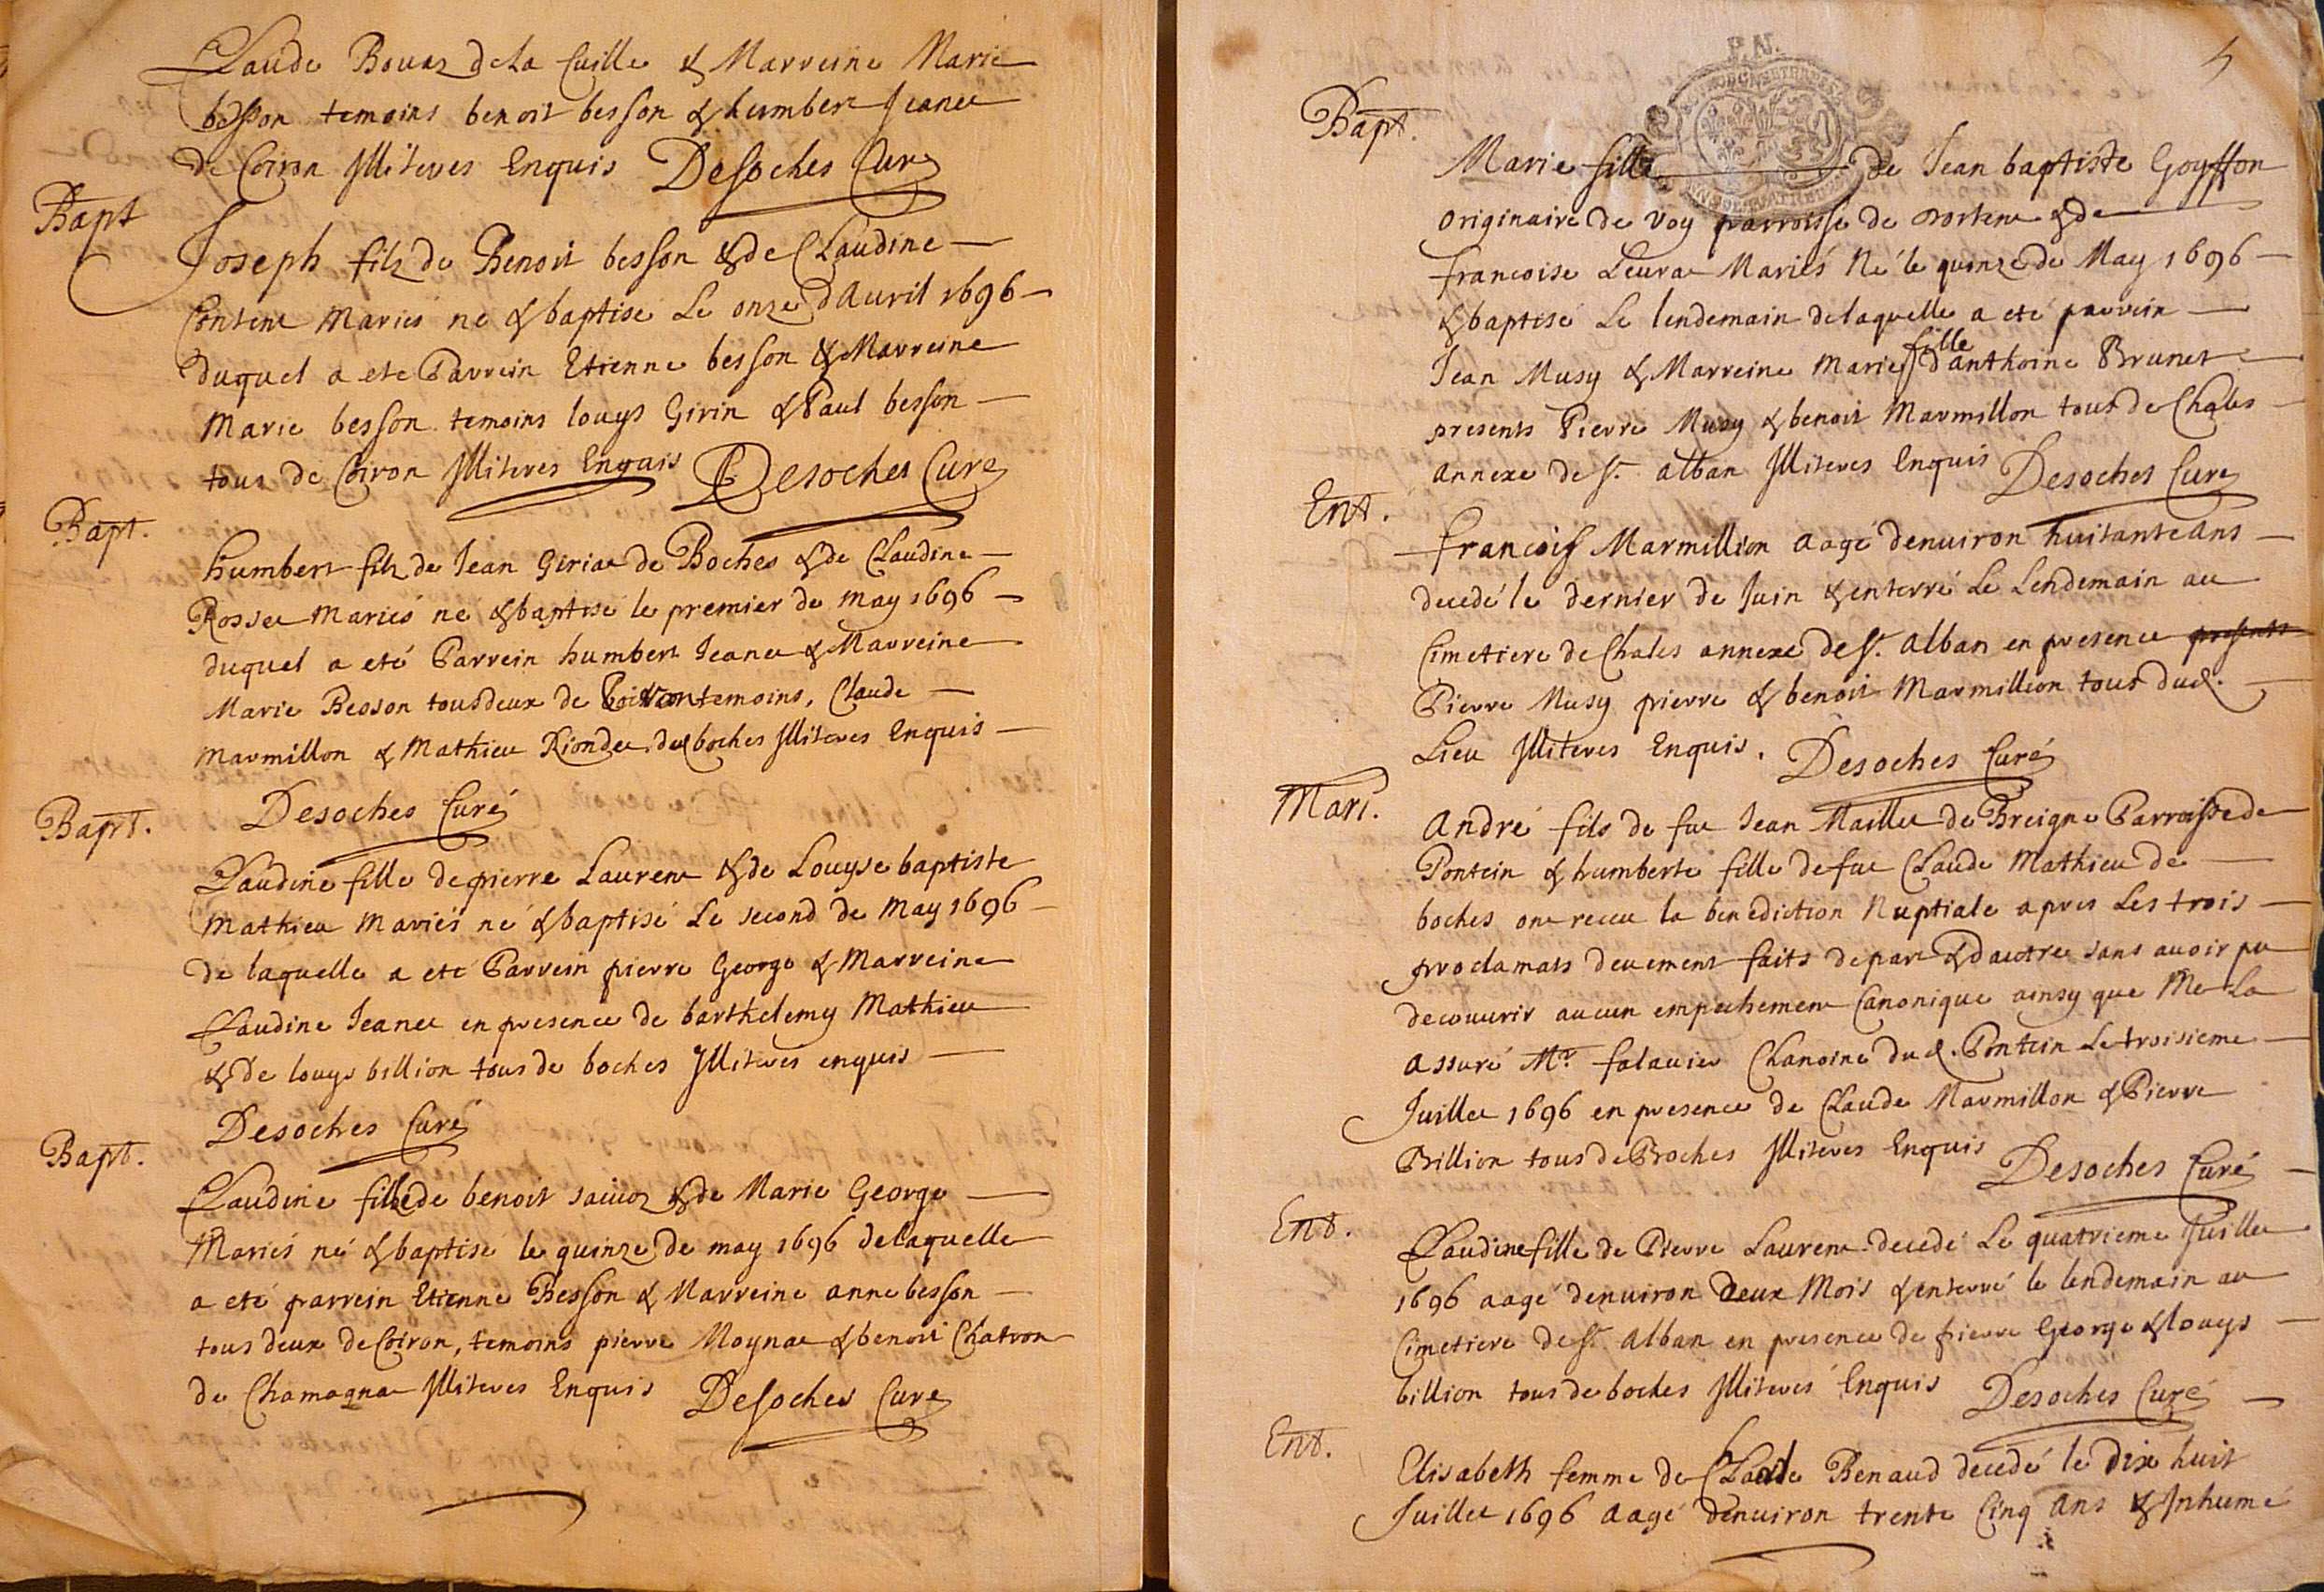 Claude Bouaz de la Cuille & Marreine Marie
besson temoins benoit besson & humbert Jeanet
de Coiron Illiteres Enquis Desoches Curé
Bapt
Joseph filz de Benoit besson & de Claudine
Contene Mariés né & baptisé Le onze d'Auril 1696
duquel a ete Parrein Etienne besson & Marreine
Marie besson temoins louys Girin & Paul besson
tous de Coiron Illiteres Enquis Desoches Curé
Bapt.
humbert filz de Jean Giriat de Boches & de Claudine
Rosset Mariés né & baptisé le premier de may 1696
duquel a eté Parrein humbert Jeanet & Marreine
Marie Besson tous deux de Coiron temoins, Claude
Marmillon & Mathieu Riondet dud boches Illiteres Enquis
Desoches Curé
Bapt.
Claudine fille de pierre Laurent & de Louyse baptiste
Mathieu Mariés né & baptisé Le second de May 1696
de laquelle a eté Parrein pierre George & Marreine
Claudine Jeanet en presence de barthelemy Mathieu
& de louys billion tous de boches Illiteres enquis
Desoches Curé
Bapt.
Claudine fille de benoit & de Marie George
Mariés né & baptisé le quinze de may 1696 delaquelle
a eté parrein Etienne Besson & Marreine anne besson
tous deux de Coiron, temoins pierre Moynat & benoit Chatron
de Chamagnat Illiteres Enquis Desoches Curé
P.N.
Bapt.
Marie fille de Jean baptiste Goyffon
originaire de Voy parroisse de & de
francoise Leurat Mariés Né le quinze de May 1696
& baptisé Le lendemain delaquelle a eté parrein
fille
Jean Musy & Marreine Marie d'anthoine Brunet
presents Pierre Musy & benoit Marmillon tous de Chales
annexe de St. alban Illiteres Enquis Desoches Curé
Ent.
francois Marmillion aagé denuiron huitante ans
decedé le dernier de Juin & enterré Le Lendemain au
Cimetiere de Chales annexe de St. alban en presence presents
Pierre Musy pierre & benoit Marmillion tous dud.
Lieu Illiteres Enquis. Desoches Curé
Mari.
André fils de fut Jean Maillet de Breigne Parroisse de
Pontein & humberte fille de fut Claude Mathieu de
boches ont receu la benediction Nuptiale apres Les trois
proclamats deuement faits de part & dautre sans auoir pu
decouurir aucun empechement Canonique ainsy que Me La
assuré Mr. falauier Chanoine dud. Pontein Le troisieme
Juillet 1696 en presence de Claude Marmillon & Pierre
Billion tous de Boches Illiteres Enquis Desoches Curé
Ent.
Claudine fille de Pierre Laurent decedé Le quatrieme Juillet
1696 aagé denuiron Deux Mois & enterré le lendemain au
Cimetiere de St. alban en presence de pierre George & louys
billion tous de boches Illiterés Enquis Desoches Curé
Ent.
Elisabeth femme de Claude Benaud decedé le Dix huit
Juillet 1696 aagé denuiron trente Cinq ans & Inhumé